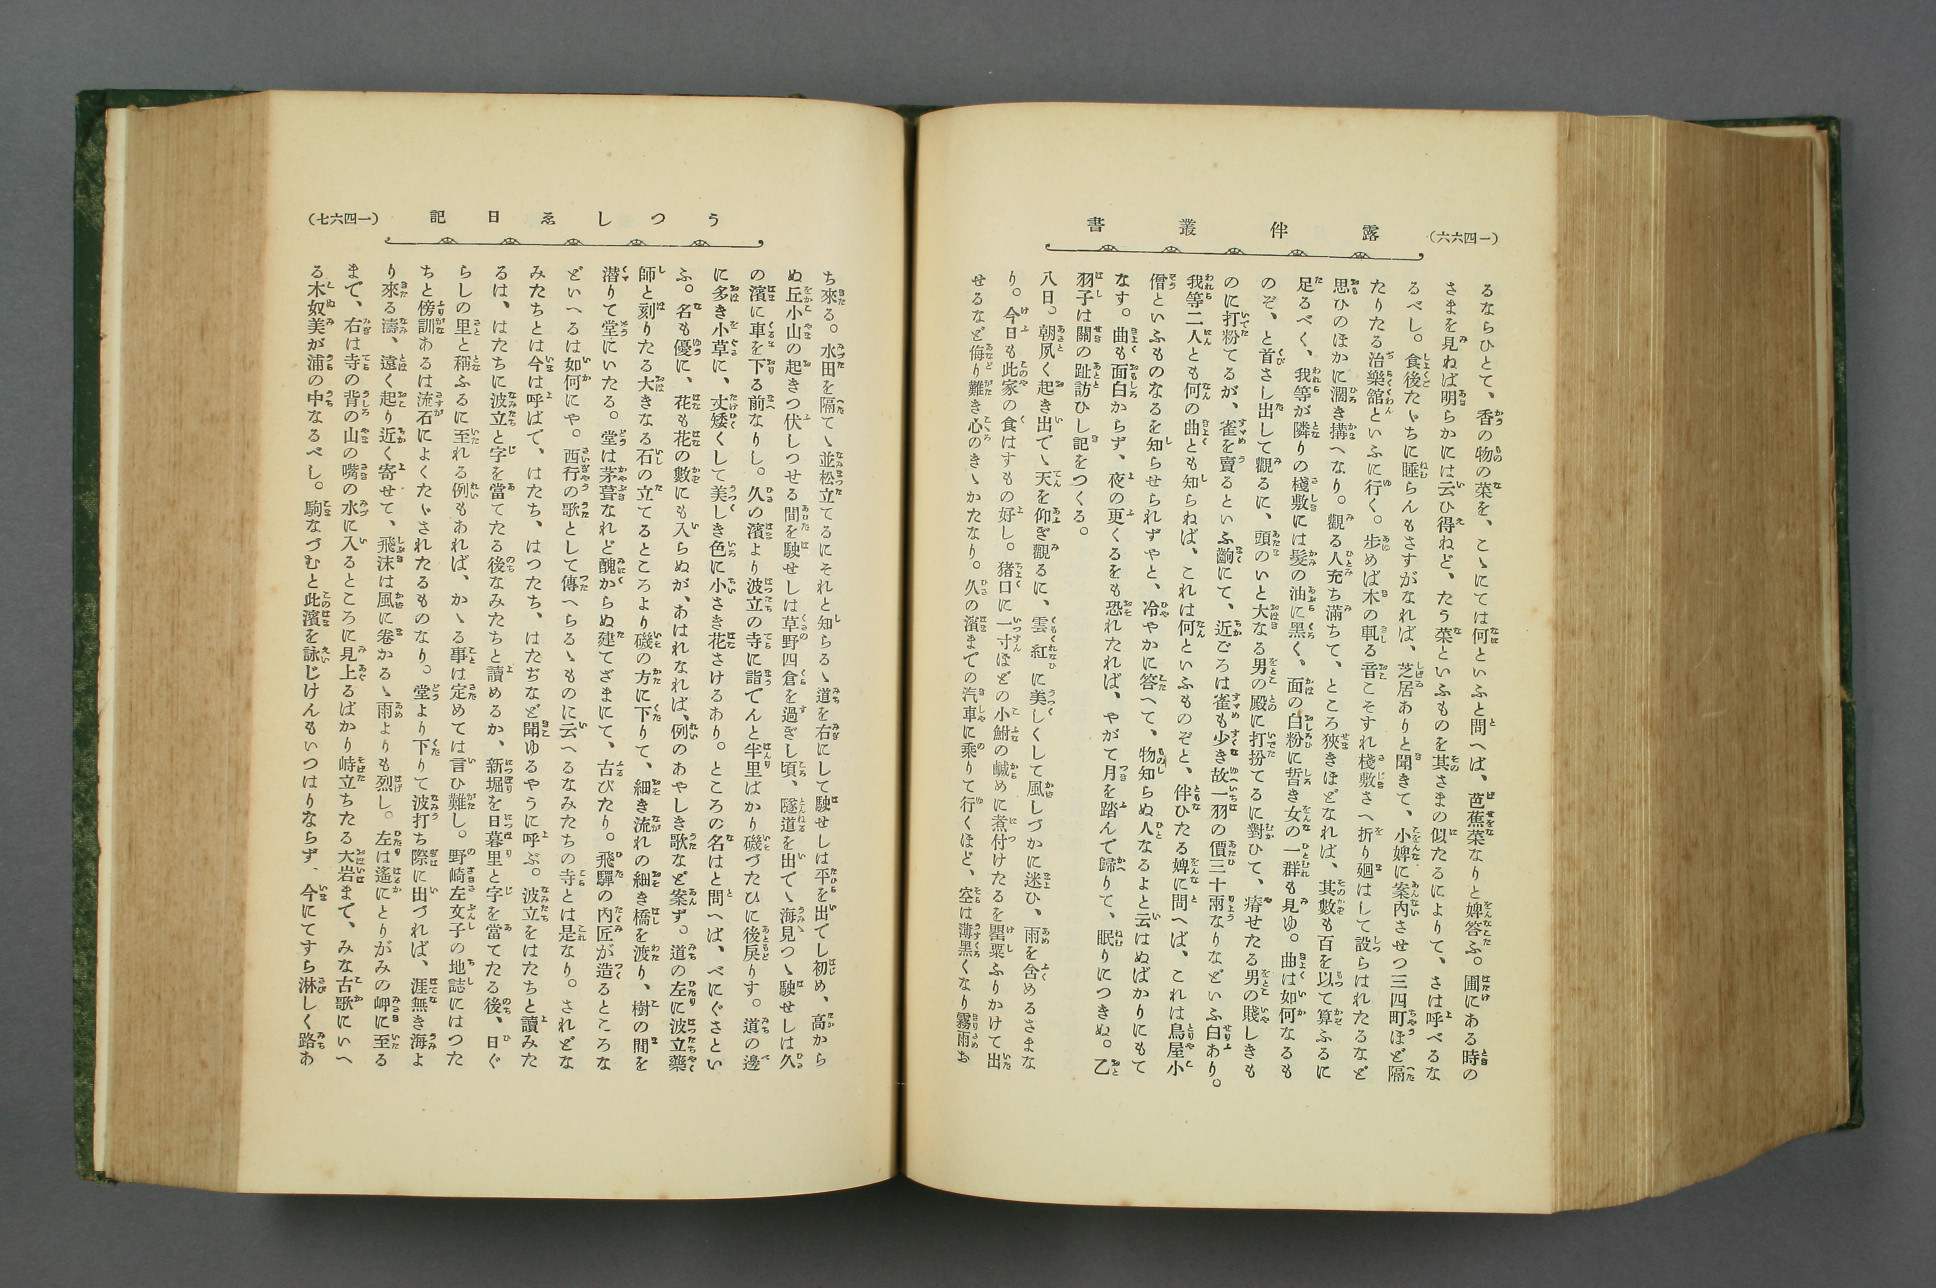 (一四六六)
露伴叢書
るならひとて、香の物の菜を、こゝにては何といふと問へば、芭蕉菜なりと婢答ふ。圃にある時の
さまを見ねば明らかには云ひ得ねど、たう菜といふものを其さまの似たるによりて、さは呼べるな
るべし。食後たゞちに睡らんもさすがなれば、芝居ありと聞きて、小婢に案内させつ三四町ほど隔
たりたる治樂館といふに行く。歩めば木の軋る音こそすれ棧敷さへ折り廻はして設らはれたるなど
思ひのほかに濶き搆へなり。觀る人充ち滿ちて、ところ狹きほどなれば、其數も百を以て算ふるに
足るべく、我等が隣りの棧敷には髮の油に黑く、面の白粉に皙き女の一群も見ゆ。曲は如何なるも
のぞ、と首さし出して觀るに、頭のいと大なる男の殿に打扮てるに對ひて、瘠せたる男の賤しきも
のに打粉てるが、雀を賣るといふ齣にて、近ごろは雀も少き故一羽の價三十兩なりなどいふ白あり。
我等二人とも何の曲とも知らねば、これは何といふものぞと、伴ひたる婢に問へば、これは鳥屋小
僧といふものなるを知らせられずやと、冷やかに答へて、物知らぬ人なるよと云はぬばかりにもて
なす。曲も面白からず、夜の更くるをも恐れたれば、やがて月を踏んで歸りて、眠りにつきぬ。乙
羽子は關の趾訪ひし記をつくる。
八日。朝夙く起き出で、天を仰ぎ觀るに、雲紅に美しくして風しづかに迷ひ、雨を含めるさまな
り。今日も此家の食はすもの好し。猪口に一寸ほどの小鮒の鹹めに煮付けたるを罌粟ふりかけて出
せるなど侮り難き心のきゝかたなり。久の濱までの汽車に乘りて行くほど、空は薄黑くなり霧雨お
うつしゑ日記
(一四六七)
ち來る。水田を隔てゝ並松立てるにそれと知らるゝ道を右にして駛せしは平を出でし初め、高から
ぬ丘小山の起きつ伏しつせる間を駛せしは草野四倉を過ぎし頃、隧道を出でゝ海見つゝ駛せしは久
の濱に車を下る前なりし。久の濱より波立の寺に詣でんと半里ばかり磯づたひに後戾りす。道の邊
に多き小草に、丈矮くして美しき色に小さき花さけるあり。ところの名はと問へば、べにぐさとい
ふ。名も優に、花も花の數にも入らぬが、あはれなれば、例のあやしき歌など案ず。道の左に波立藥
師と刻りたる大きなる石の立てるところより磯の方に下りて、細き流れの細き橋を渡り、樹の間を
潜りて堂にいたる。堂は茅葺なれど醜からぬ建てざまにて、古びたり。飛驒の內匠が造るところな
どいへるは如何にや。西行の歌として傳へらるゝものに云へるなみたちの寺とは是なり。されどな
みたちとは今は呼ばで、はたち、はつたち、はたぢなど聞ゆるやうに呼ぶ。波立をはたちと讀みた
るは、はたちに波立と字を當てたる後なみたちと讀めるか、新堀を日暮里と字を當てたる後、日ぐ
らしの里と稱ふるに至れる例もあれば、かゝる事は定めては言ひ難し。野崎左文子の地誌にはつた
ちと傍訓あるは流石によくたゞされたるものなり。堂より下りて波打ち際に出づれば、涯無き海よ
り來る濤、遠く起り近く寄せて、飛沫は風に卷かるゝ雨よりも烈し。左は遙にとりがみの岬に至る
まで、右は寺の背の山の嘴の水に入るところに見上るばかり峙立ちたる大岩まで、みな古歌にいへ
る木奴美が浦の中なるべし。駒なづむと此濱を詠じけんもいつはりならず、今にてすら淋しく路あ